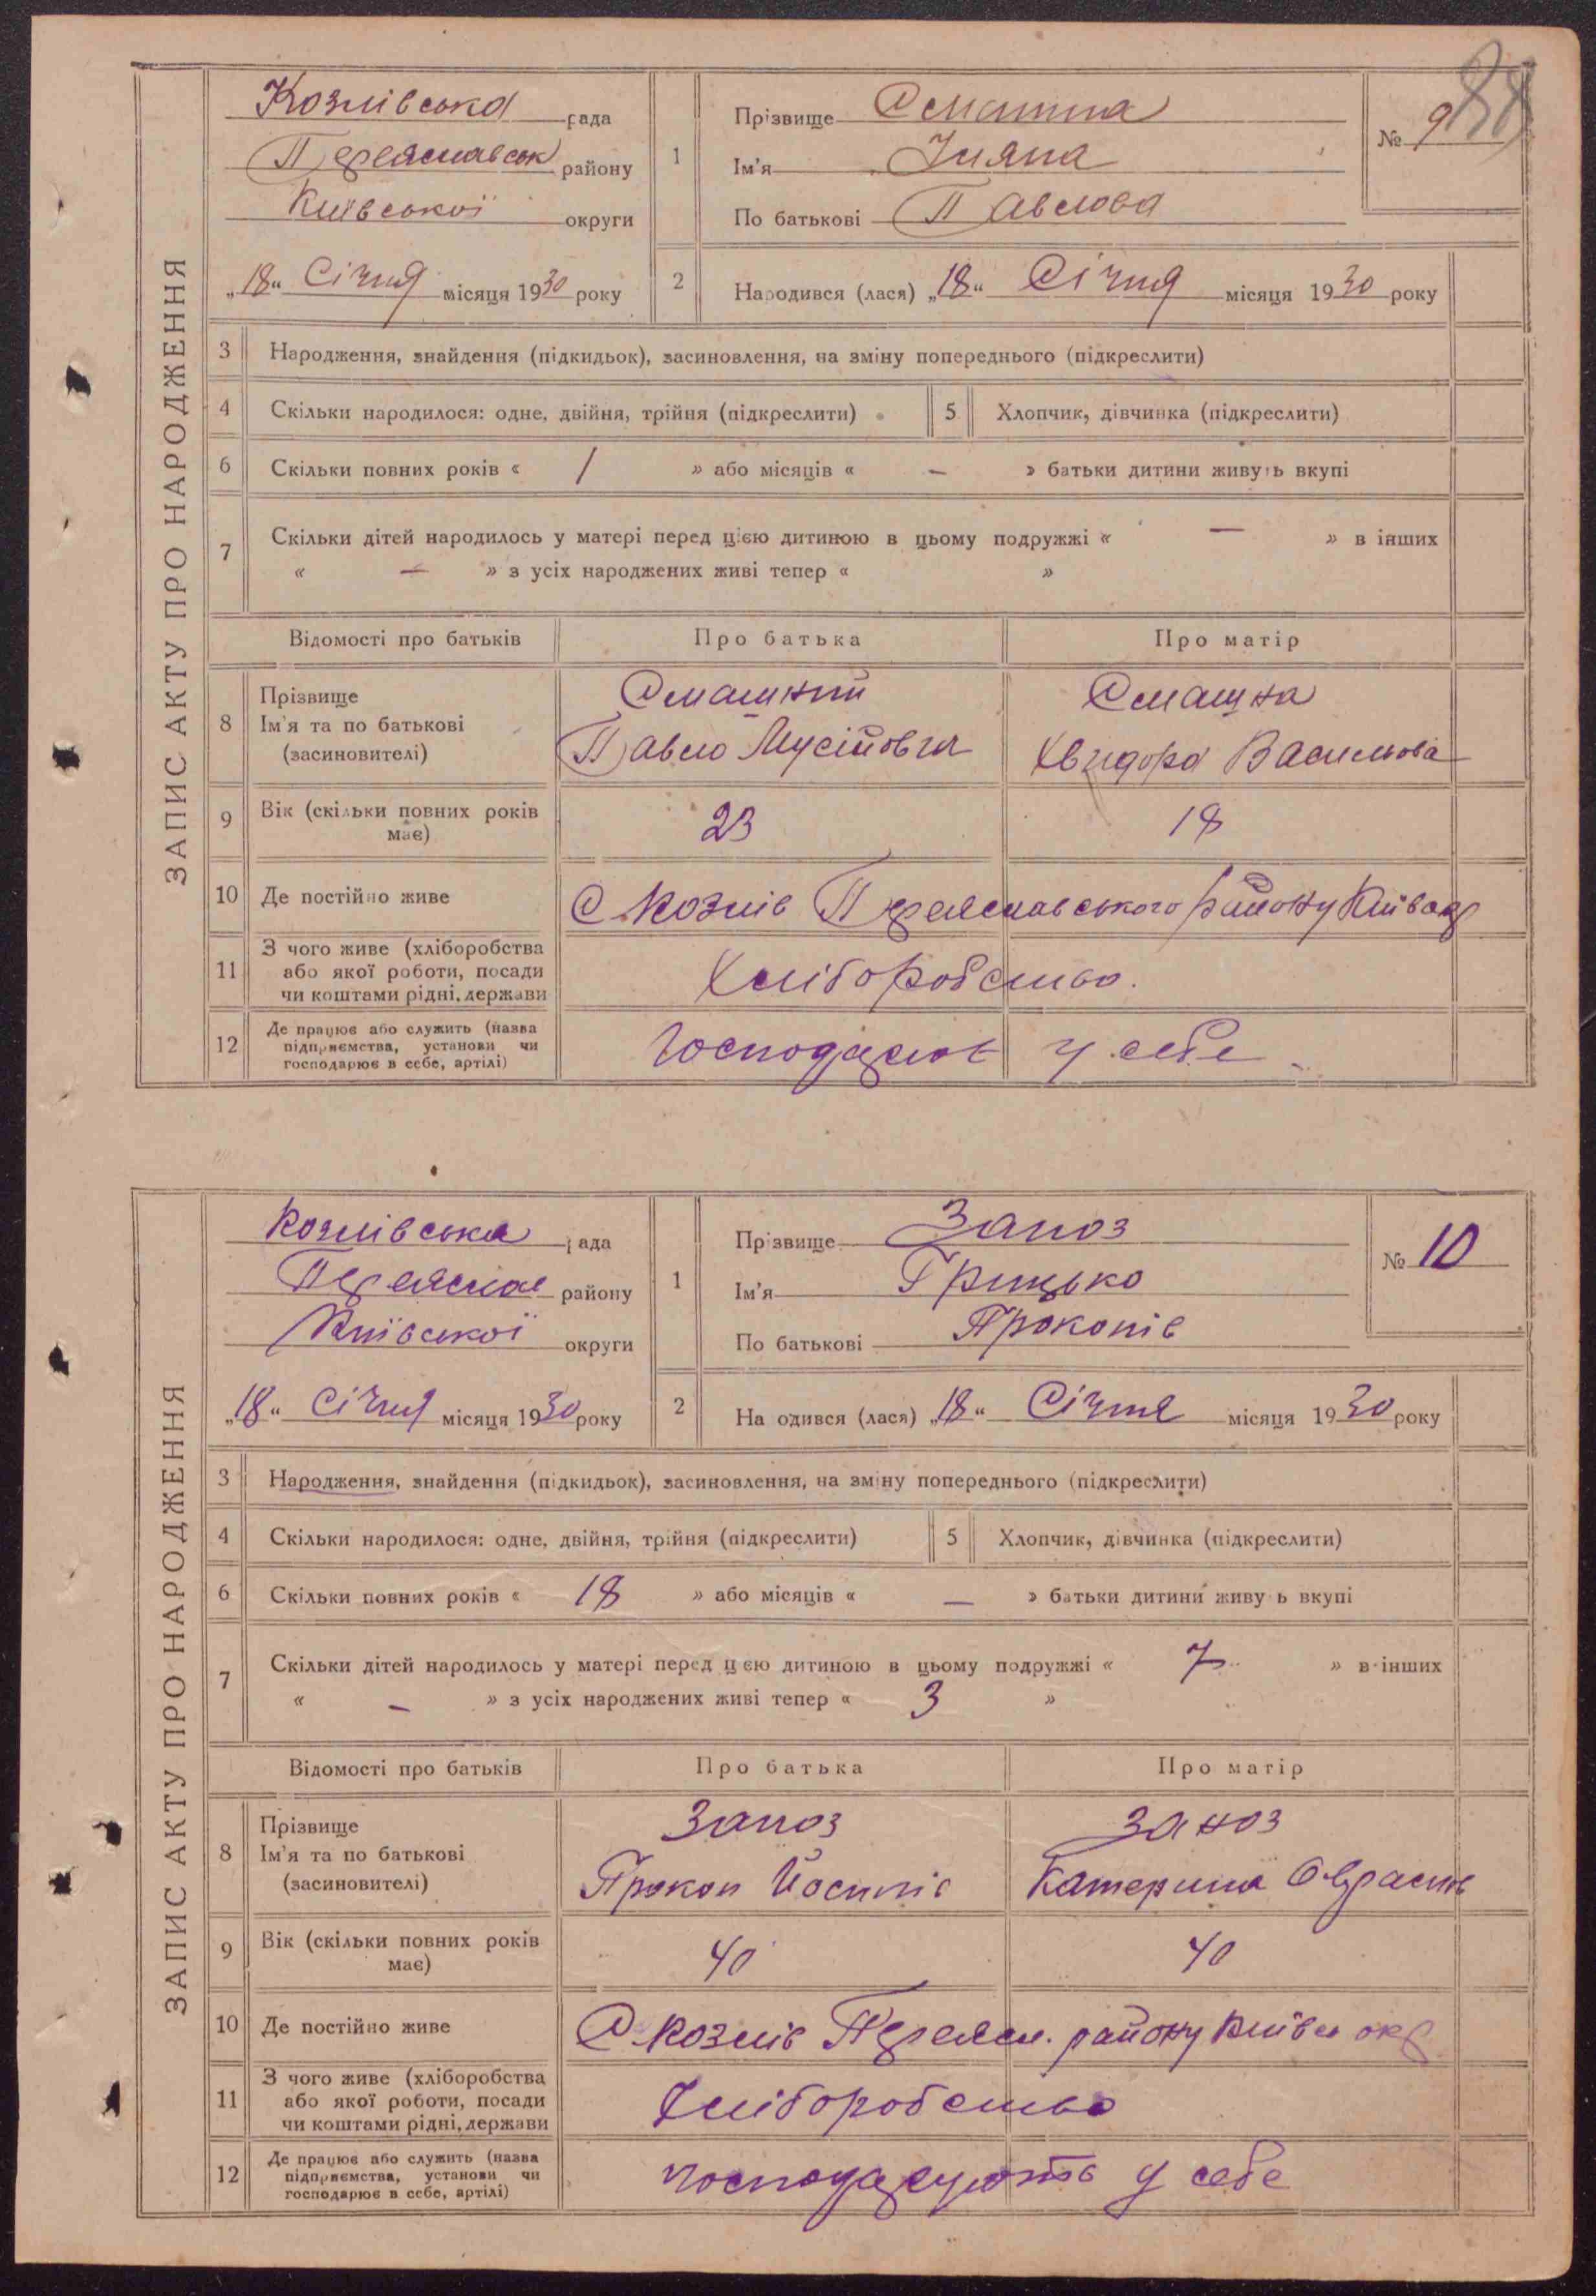 ЗАПИС АКТУ ПРО НАРОДЖЕННЯ
Козлівська рада
Переяславськ району
Київської округи
„18“ Січня місяця 1930 року
1 Прізвище Смашна
Ім'я Уляна
По батькові Павлова
№ 9
2 Народився (лася) „18“ Січня місяця 1930 року
3 Народження, знайдення (підкидьок), засиновлення, на зміну попереднього (підкреслити)
4 Скільки народилося: одне, двійня, трійня (підкреслити)
5 Хлопчик, дівчинка (підкреслити)
6 Скільки повних років « 1 » або місяців « — » батьки дитини живуть вкупі
7 Скільки дітей народилось у матері перед цією дитиною в цьому подружжі « — » в інших
« — » з усіх народжених живі тепер « »
Відомості про батьків Про батька Про матір
8 Прізвище
Ім'я та по батькові
(засиновителі)
Смашний
Павло Мусійович
Смашна
Хвидора Васильова
9 Вік (скільки повних років має) 23 18
10 Де постійно живе С Козлів Переяславського району Київ окр
11 З чого живе (хліборобства
або якої роботи, посади
чи коштами рідні, держави
Хліборобство.
12 Де працює або служить (назва
підприємства, установи чи
господарює в себе, артілі)
у себе
ЗАПИС АКТУ ПРО НАРОДЖЕННЯ
Козлівська рада
Переяслав району
Київської округи
„18“ Січня місяця 1930 року
1 Прізвище Заноз
Ім'я Грицько
По батькові Прокопів
№ 10
2 Народився (лася) „18“ Січня місяця 1930 року
3 Народження, знайдення (підкидьок), засиновлення, на зміну попереднього (підкреслити)
4 Скільки народилося: одне, двійня, трійня (підкреслити)
5 Хлопчик, дівчинка (підкреслити)
6 Скільки повних років « 18 » або місяців « — » батьки дитини живуть вкупі
7 Скільки дітей народилось у матері перед цією дитиною в цьому подружжі « 7 » в інших
« — » з усіх народжених живі тепер « 3 »
Відомості про батьків Про батька Про матір
8 Прізвище
Ім'я та по батькові
(засиновителі)
Заноз
Прокоп Йосипів
Заноз
Катерина
9 Вік (скільки повних років має) 40 40
10 Де постійно живе С Козлів Переясл. району Київськ окр
11 З чого живе (хліборобства
або якої роботи, посади
чи коштами рідні, держави
Хліборобство
12 Де працює або служить (назва
підприємства, установи чи
господарює в себе, артілі)
господарують у себе